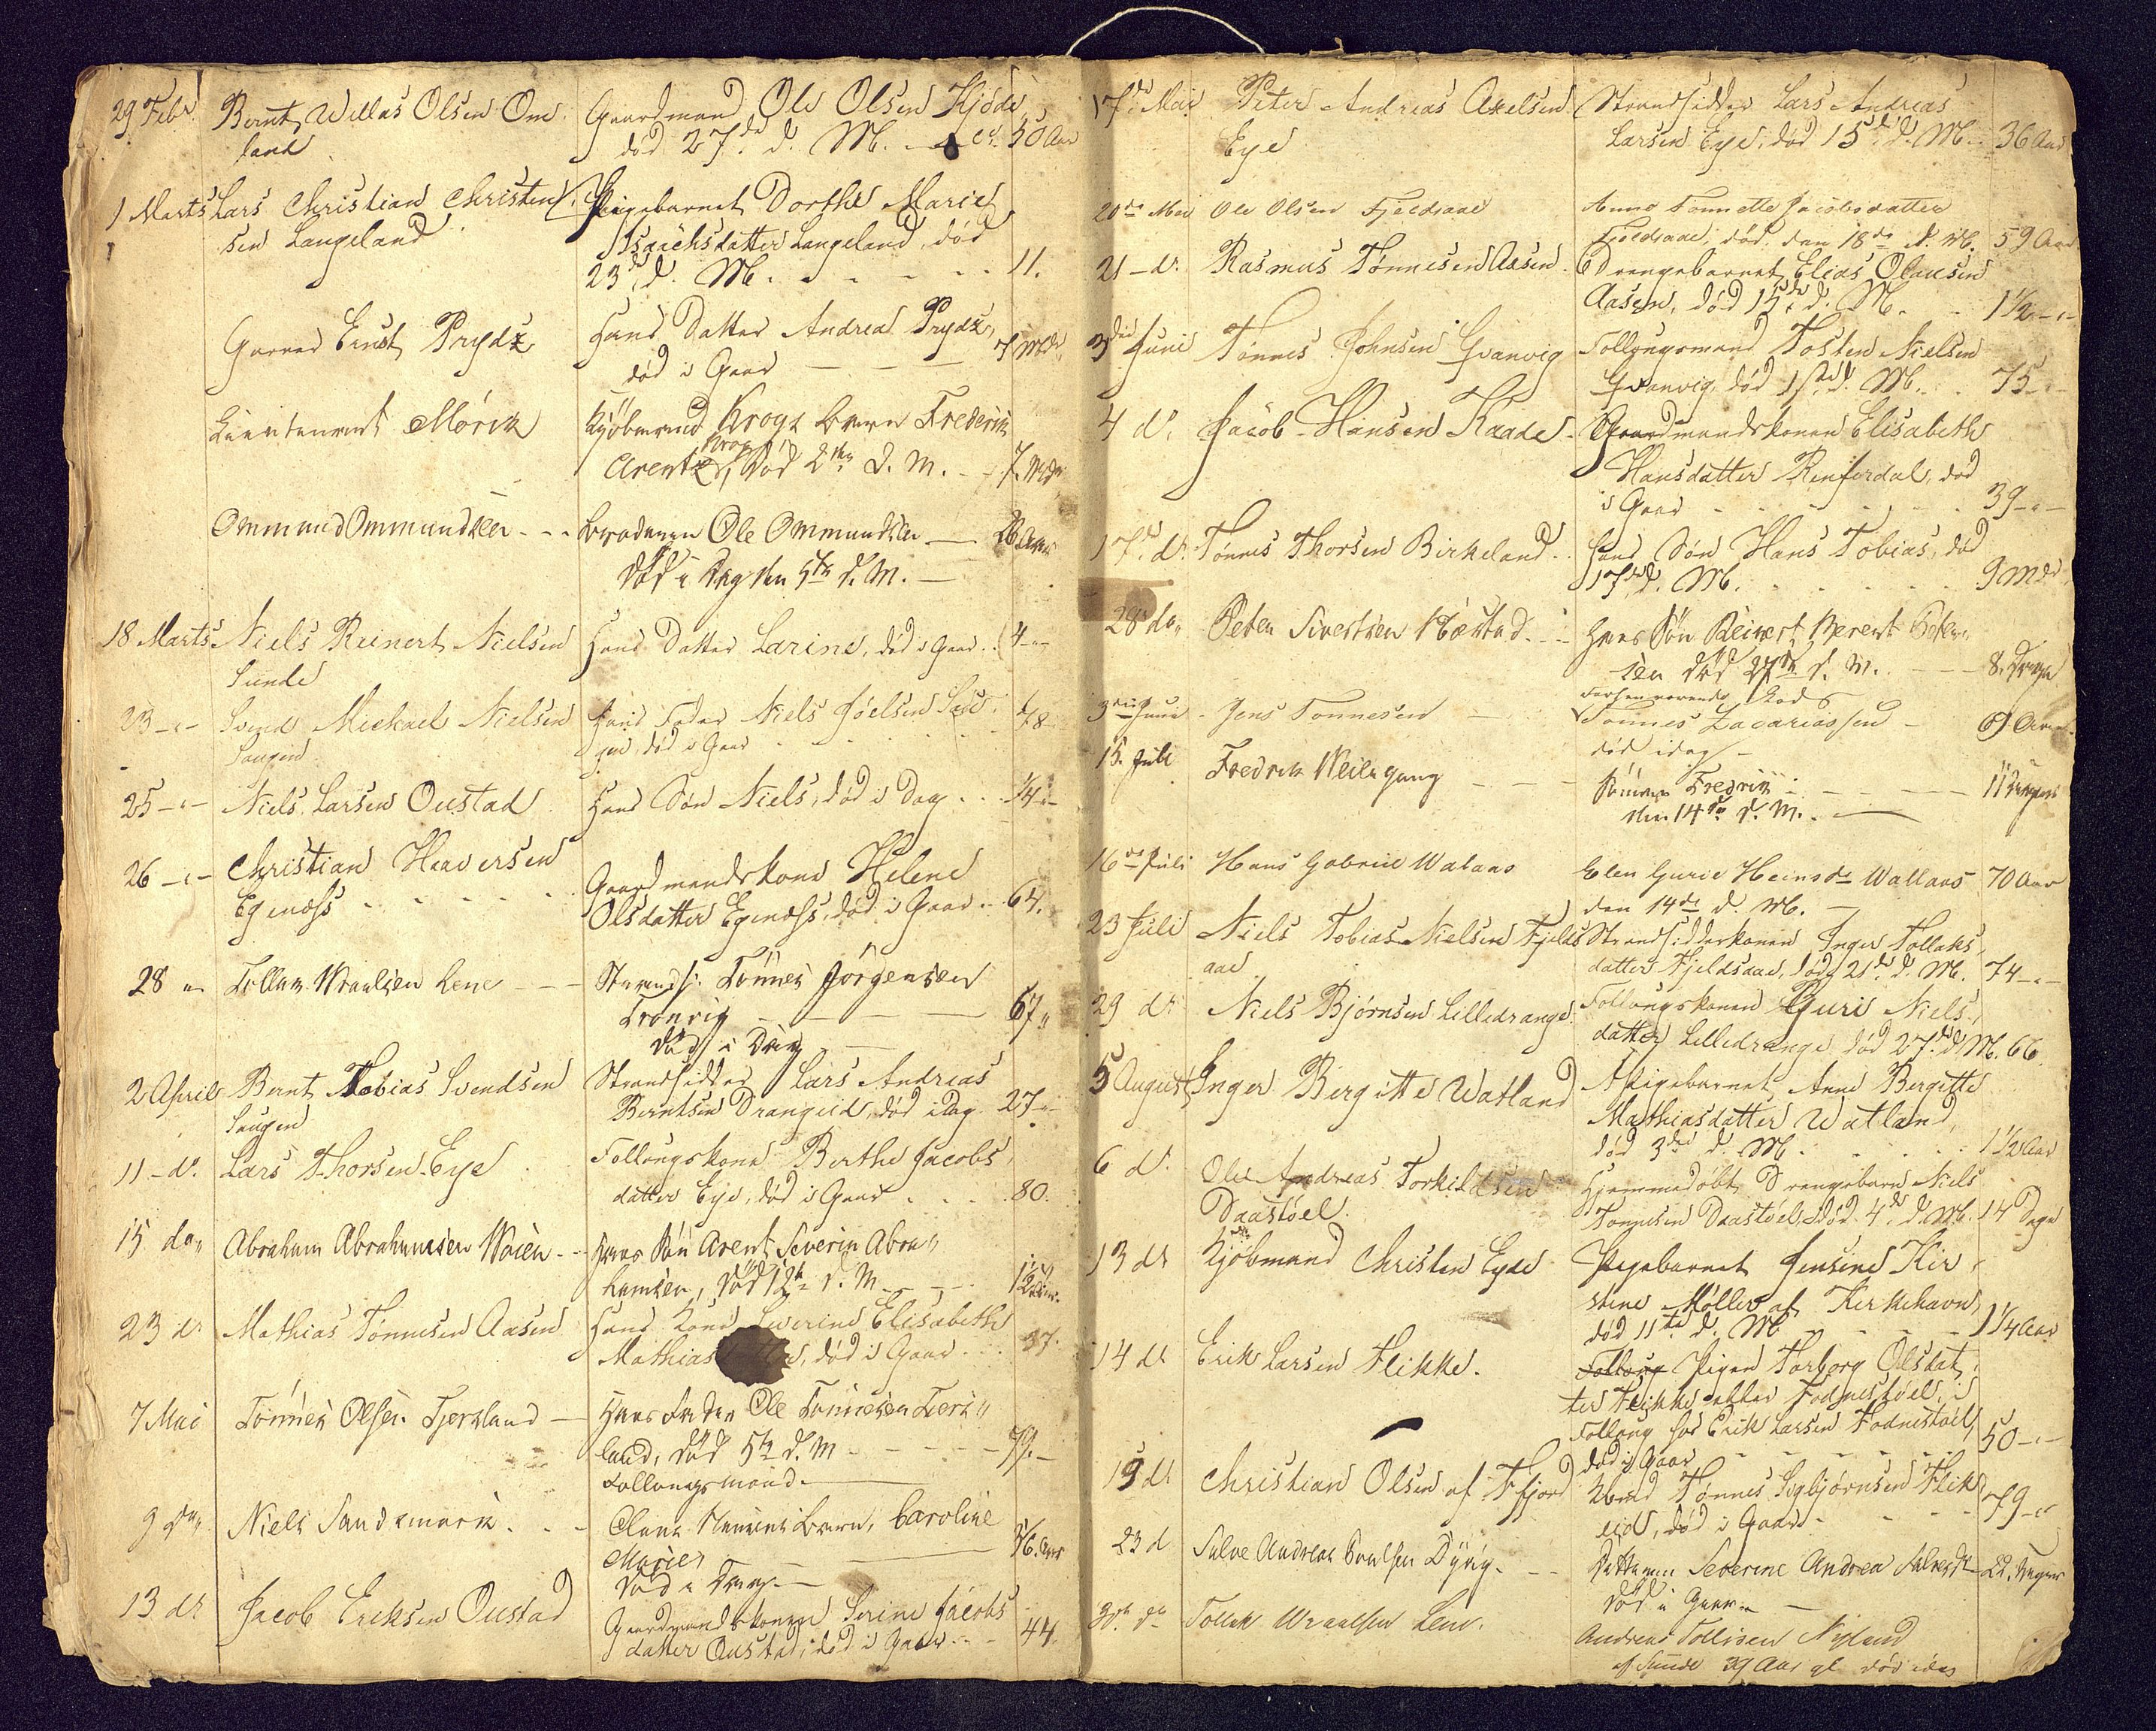 29 Febr. Bernt Willas Olsen Om-
land
Gaardmand Ole Olsen Hjöde
död 27de d. M. 50 Aar
1 Marts Lars Christian Christen-
sen Langeland
Pigebarnet Dorthe Marie
Isaachsdatter Langeland, död
23de d. M. 11.
Ernst Prydz
Hans Datter Andrea Prydz,
död i Gaar
Lieutenant Mörck
Kjöbmand Krogs Barn Frederik
Arentz Krog, död 2den d. M. 7. Mdr
Ommund Ommundsen
Broderen Ole Ommundsen 26 Aar
död i Dag den 5te d. M.
18 Marts Niels Reinert Nielsen
Sunde
Hans Datter Larine, död i Gaar 4
23 Svend Michael Nielsen
Haugen
Hans Fader Niels Joelsen
död i Gaar 78
25 Niels Larsen Oustad
Hans Sön Niels, död i Dag 1/4
26 Christian Heaversen
Egenæss
Gaardmandskone Helene
Olsdatter Egenæss, död i Gaar 64.
28 Tollak Wraalsen Lene
Strands: Tönnes Jörgensen
67
död i Dag
2 April Bernt Tobias Svendsen
Haugen
Strandsidder Lars Andreas
Berntsen Drangeid, död i Dag 27
11 d. Lars Thorsen Eye
Follougskone Berthe Jacobs
datter Eye, död i Gaar 80.
15 do Abraham Abrahamsen
Hans Sön Arent Severin Abra-
hamsen, död 12te d. M. 1 1/2
23 d. Mathias Tönnesen Aasen
Hans Kone Severine Elisabeth
Mathias , död i Gaar 37.
7 Mai Tönnes Olsen Fjersland
Hans Fader Ole Tönnesen Fiers-
land, död 5te d. M. 79
Follaugsmand.
9 do Niels Sandsmark
Barn, Caroline
Marie
död i Dag
13 d. Jacob Eriksen Oustad
Gaardmandskonen Serine Jacobs
datter Oustad, död i Gaar 44.
17de Mai Peter Andreas Axelsen
Eye
Strandsidder Lars Andreas
Larsen Eye, död 15de d. M. 36 Aar
20de Mai Ole Olsen Fjeldsaae
Anne Tönnette Jacobsdatter
Fjeldsaae, död den 18de d. M. 59 Aar
21 d. Rasmus Tönnesen Aasen
Drengebarnet Elias Olausen
Aasen, död 15de d. M. 1 1/2
3die Juni Tönnes Johnsen Gvanvig
Follougsmand Tosten Nielsen
Gvanvig, död 1ste d. M. 75
4 d. Jacob Hansen Raade
Gaardmandskonen Elisabeth
Hansdatter Rensfordal, död
i Gaar 39
17de d. Tönnes Thorsen Birkeland
Hans Sön Hans Tobias, död
17de d. M. 9 Mdr
28 do Peter Sivertsen
Hans Sön Reinert Berent Peter-
sen död 27de d. M. 8. Dage
3die Juni Jens Tonnesen
Forhenværende Lods
Tonnes Zacariassen
död idag
15. Juli Fredrik
Sönnen Fredrik 11 Dage
den 14de d. M.
16de Juli Hans Gabriel Walaas
Elen Gurie Heinsdr Wallaas 70 Aar
den 14de d. M.
23 Juli Niels Tobias Nielsen Fjelds
aae
Strandsidderkonen Inger Tollaks
datter Fjeldsaae, död 21de d. M. 74
29 d. Niels Bjørnsen Lilledrange
Follougskonen Guri Niels
datter Lilledrange död 27de d. M. 66
5 August Inger Bergitte Watland
Pigebarnet Anne Bergitte
Mathiasdatter Watland,
död 3die d. M. 1 1/2 Aar
6 d. Ole Andreas Torkildsen
Daastöel
Hjemmedöbt Drengebarn Niels
Tonnesen Daastöel, död 4de d. M. 14 Dage
13 d. Kjöbmand Christen Eyde
Pigebarnet Jensine Kir-
stine Møller af Kirkehavn,
död 11te d. M. 1 1/4 Aar
14 d. Erik Larsen Flikke.
Folloug Pigen Torborg Olsdat-
ter Flikke eller Fodnestöel, i
Follong hos Erik Larsen Fodnestöel,
död i Gaar 50
19 d. Christian Olsen af Fjord
Tönnes Sigbjørnsen Flik
eid, död i Gaar 79
23 d. Salve Andreas
Datteren Severine Andrea Salvesdr
död i Gaar
30te do Tollak Wraalsen Lene.
Andreas Tollisen Nyland
af Sunde 39 Aar gl. död idag